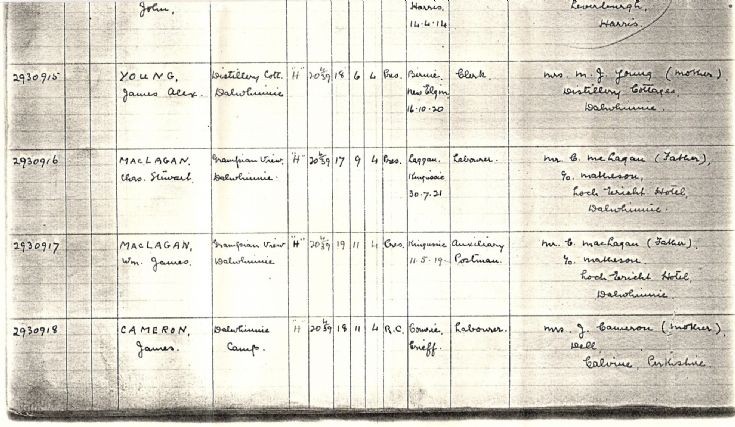 John. Harris. Leverburgh,
14.4.14 Harris.
2930915 YOUNG, Distillery Cott. "H" 20 4/39 18 6 4 Pres. Birnie Clerk. Mrs. M. J. Young (Mother)
James Alex. Dalwhinnie New Elgin Distillery Cottages,
16.10.20 Dalwhinnie.
2930916 MACLAGAN, Grampian View, "H" 20 4/39 17 9 4 Pres. Laggan, Labourer. Mr. C. McLagan (Father),
Chas. Stewart. Dalwhinnie. Kingussie c/o Matheson,
30.7.21 Loch Ericht Hotel,
Dalwhinnie.
2930917 MACLAGAN, Grampian View "H" 20 4/39 19 11 4 Pres. Kingussie Auxiliary Mr. C. MacLagan (Father),
Wm. James. Dalwhinnie 11.5.19 Postman. c/o Matheson,
Loch Ericht Hotel,
Dalwhinnie
2930918 CAMERON, Dalwhinnie H 20 4/39 18 11 4 R.C. Labourer. Mrs. J. Cameron (Mother),
James. Camp. Crieff. Dell
Calvine, Perthshire.